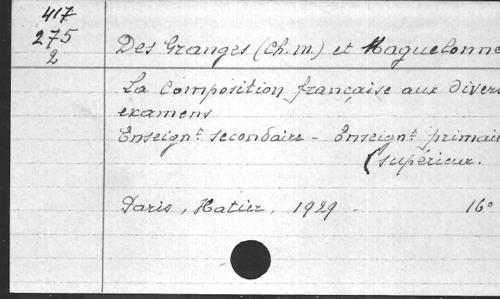 417
275
2
Des Granges (Ch. M.) et Maguelonne
La Composition française aux divers
examens
Enseign.t secondaire - Enseign.t primai
(supérieur.
Paris, Hatier, 1929 - 16°